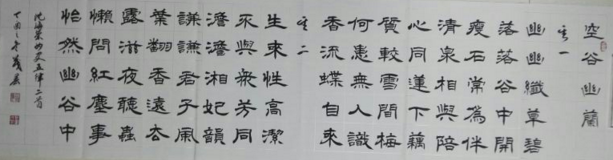 空谷幽蘭
其一
幽幽纖草碧
落落谷中開
瘦石常為伴
清泉相與陪
心同蓮下藕
質較雪間梅
何患無人識
香流蝶自來
其二
生來性高潔
不與眾芳同
澹澹湘妃韻
謙謙君子風
葉翻香遠去
露滋夜聽蟲
懶問紅塵事
怡然幽谷中
五律二首
丁酉之年